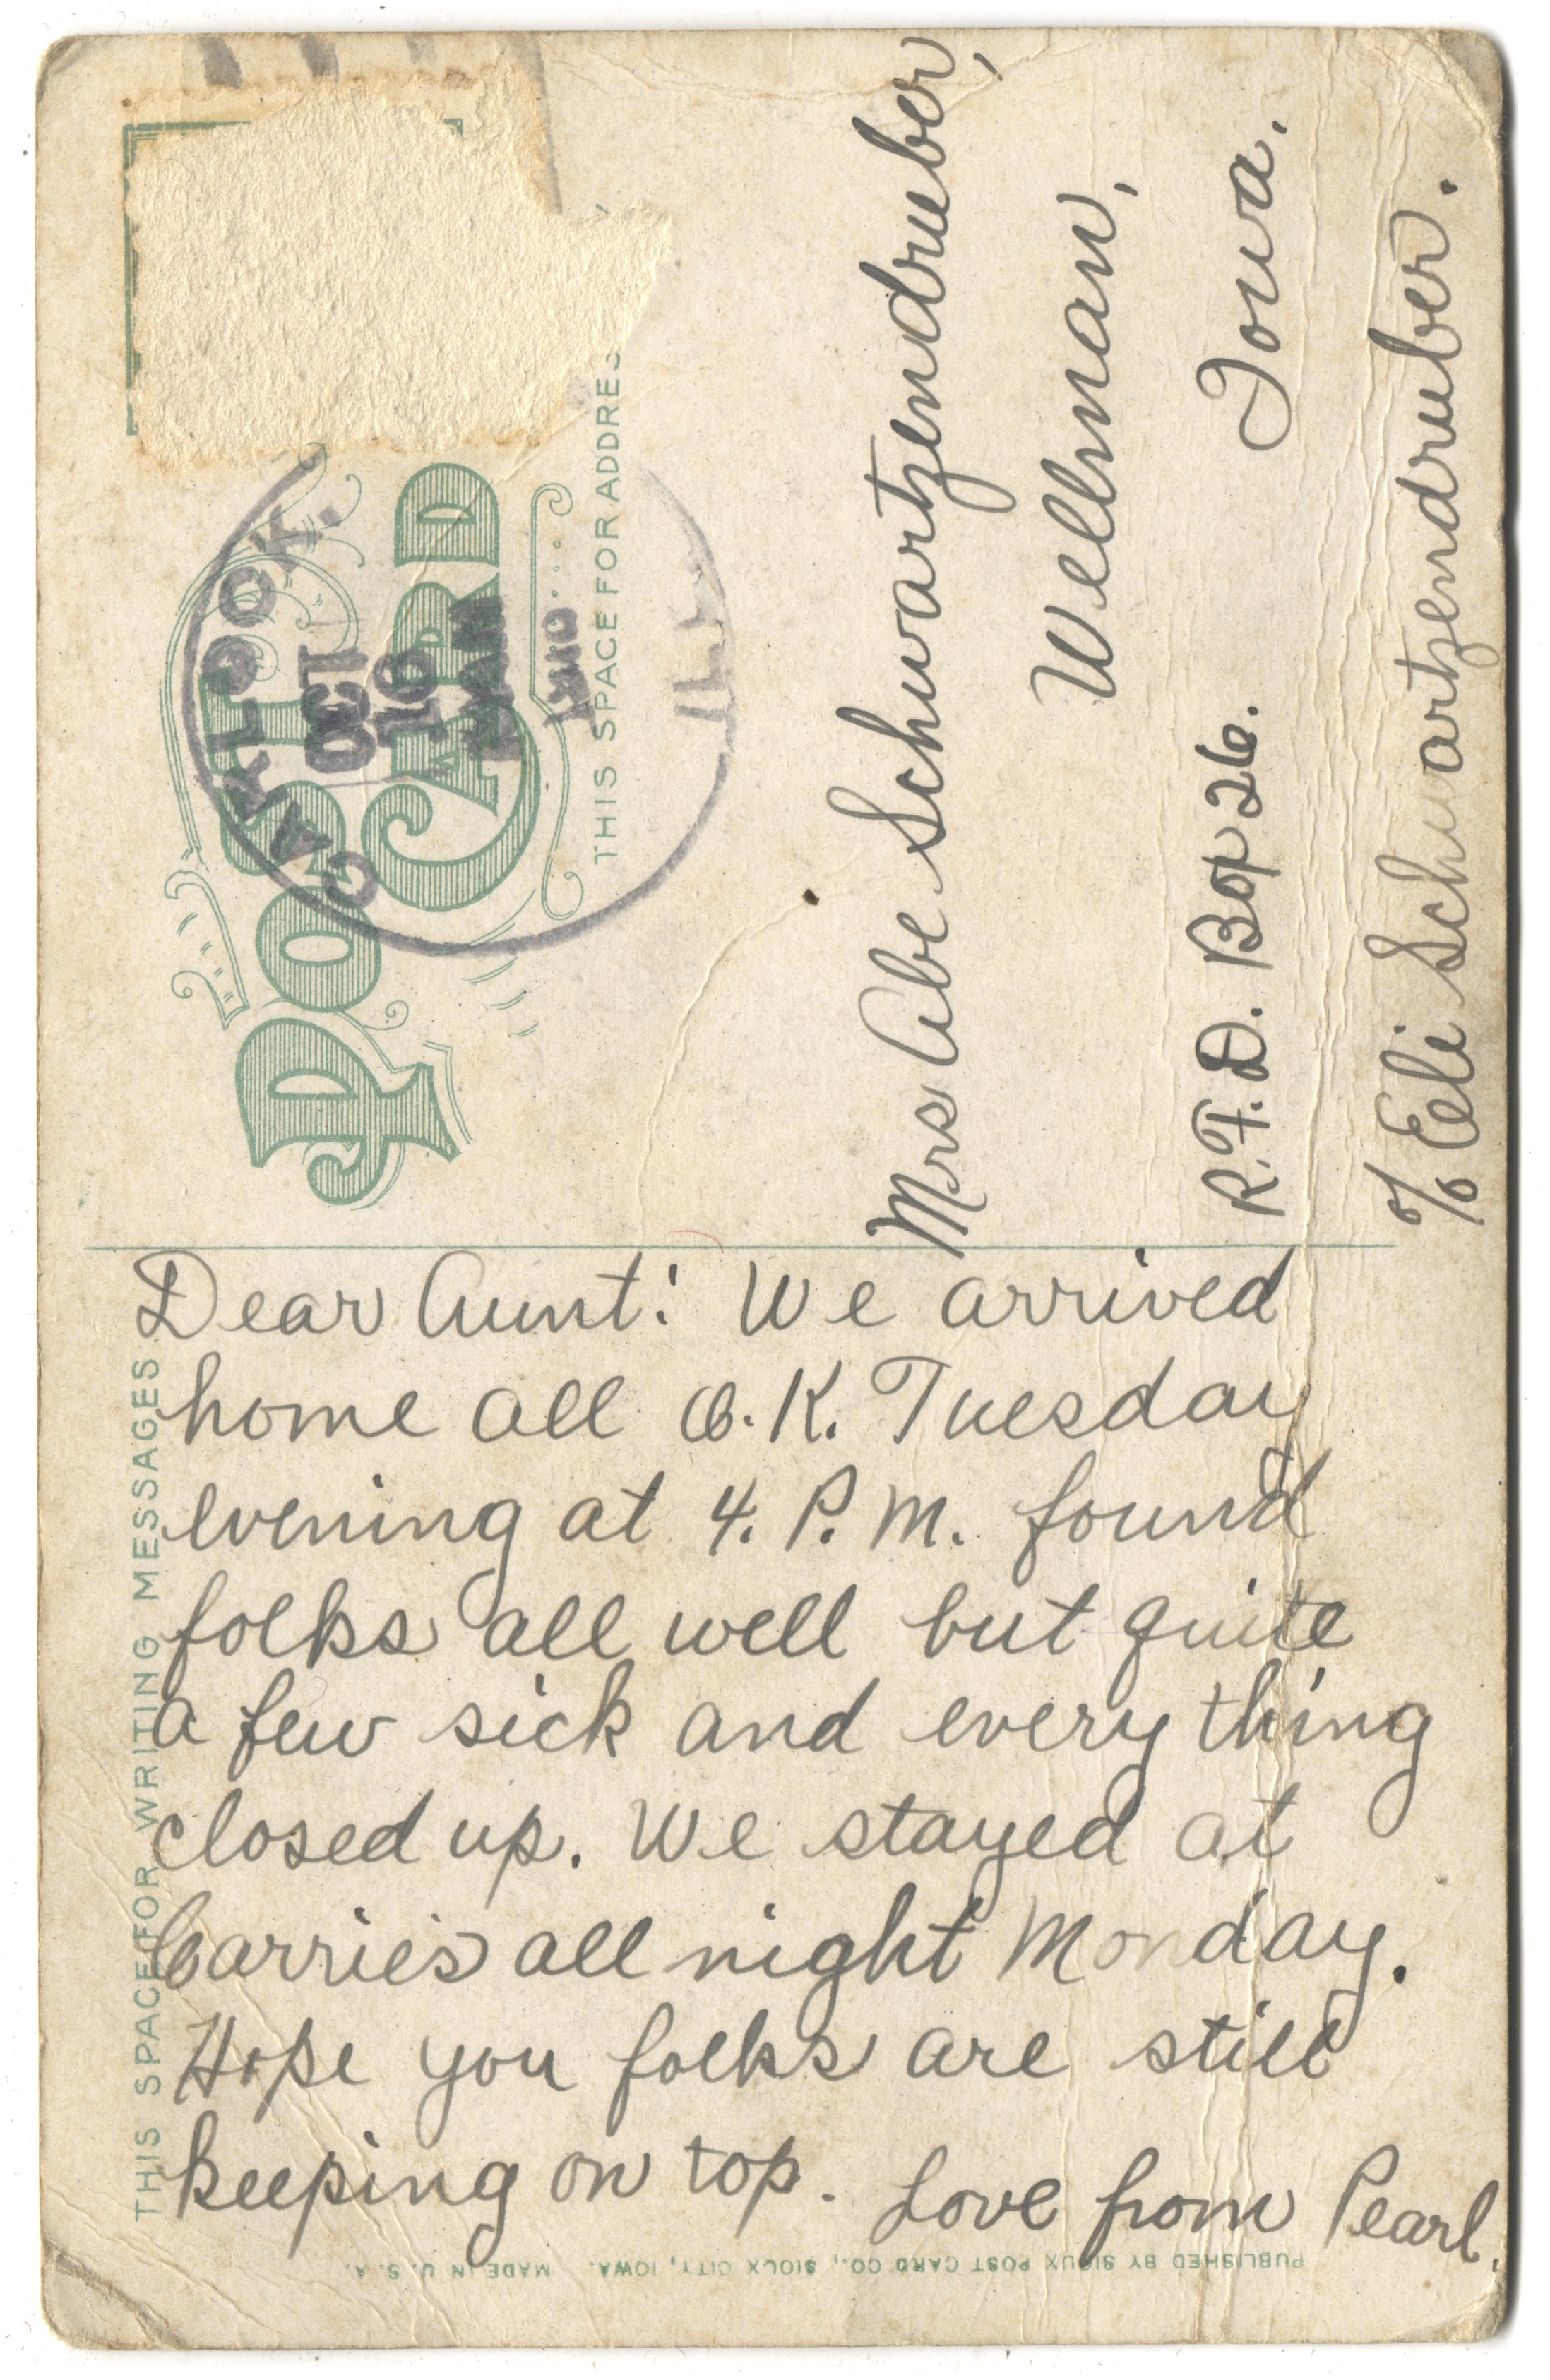 POST CARD
THIS SPACE FOR ADDRES
CARLOCK.
OCT
16
Mrs Abe Schwartzendruber,
Wellman,
R.F.D. Box 26. Iowa.
c/o Eli Schwartzendruber.
THIS SPACE FOR WRITING MESSAGES
Dear Aunt: We arrived
home all O.K. Tuesday
evening at 4. P.M. found
folks all well but quite
a few sick and every thing
closed up. We stayed at
Carrie's all night Monday.
Hope you folks are still
keeping on top. Love from Pearl.
PUBLISHED BY SIOUX POST CARD CO., SIOUX CITY, IOWA. MADE IN U.S.A.